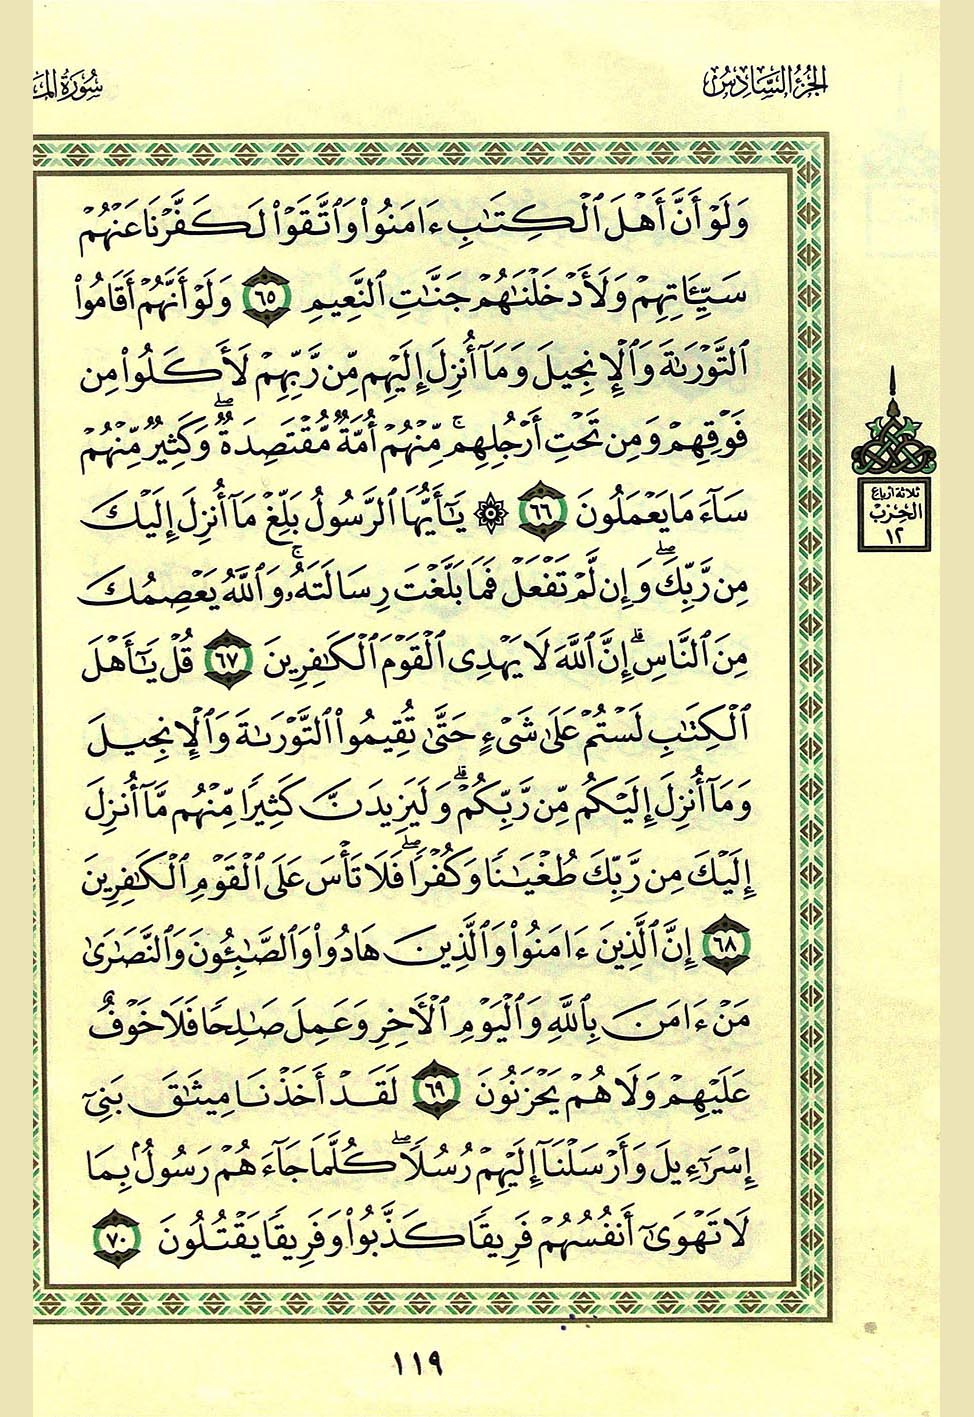 الجزء السادس
سورة الم
وَلَوْ أَنَّ أَهْلَ ٱلْكِتَٰبِ ءَامَنُوا۟ وَٱتَّقَوْا۟ لَكَفَّرْنَا عَنْهُمْ
سَيِّـَٔاتِهِمْ وَلَأَدْخَلْنَٰهُمْ جَنَّٰتِ ٱلنَّعِيمِ ٦٥ وَلَوْ أَنَّهُمْ أَقَامُوا۟
ٱلتَّوْرَىٰةَ وَٱلْإِنجِيلَ وَمَآ أُنزِلَ إِلَيْهِم مِّن رَّبِّهِمْ لَأَكَلُوا۟ مِن
فَوْقِهِمْ وَمِن تَحْتِ أَرْجُلِهِم ۚ مِّنْهُمْ أُمَّةٌ مُّقْتَصِدَةٌ ۖ وَكَثِيرٌ مِّنْهُمْ
سَآءَ مَا يَعْمَلُونَ ٦٦ ۞ يَٰٓأَيُّهَا ٱلرَّسُولُ بَلِّغْ مَآ أُنزِلَ إِلَيْكَ
مِن رَّبِّكَ ۖ وَإِن لَّمْ تَفْعَلْ فَمَا بَلَّغْتَ رِسَالَتَهُۥ ۚ وَٱللَّهُ يَعْصِمُكَ
مِنَ ٱلنَّاسِ ۗ إِنَّ ٱللَّهَ لَا يَهْدِى ٱلْقَوْمَ ٱلْكَٰفِرِينَ ٦٧ قُلْ يَٰٓأَهْلَ
ٱلْكِتَٰبِ لَسْتُمْ عَلَىٰ شَىْءٍ حَتَّىٰ تُقِيمُوا۟ ٱلتَّوْرَىٰةَ وَٱلْإِنجِيلَ
وَمَآ أُنزِلَ إِلَيْكُم مِّن رَّبِّكُمْ ۗ وَلَيَزِيدَنَّ كَثِيرًا مِّنْهُم مَّآ أُنزِلَ
إِلَيْكَ مِن رَّبِّكَ طُغْيَٰنًا وَكُفْرًا ۖ فَلَا تَأْسَ عَلَى ٱلْقَوْمِ ٱلْكَٰفِرِينَ
٦٨ إِنَّ ٱلَّذِينَ ءَامَنُوا۟ وَٱلَّذِينَ هَادُوا۟ وَٱلصَّٰبِـُٔونَ وَٱلنَّصَٰرَىٰ
مَنْ ءَامَنَ بِٱللَّهِ وَٱلْيَوْمِ ٱلْـَٔاخِرِ وَعَمِلَ صَٰلِحًا فَلَا خَوْفٌ
عَلَيْهِمْ وَلَا هُمْ يَحْزَنُونَ ٦٩ لَقَدْ أَخَذْنَا مِيثَٰقَ بَنِىٓ
إِسْرَٰٓءِيلَ وَأَرْسَلْنَآ إِلَيْهِمْ رُسُلًا ۖ كُلَّمَا جَآءَهُمْ رَسُولٌۢ بِمَا
لَا تَهْوَىٰٓ أَنفُسُهُمْ فَرِيقًا كَذَّبُوا۟ وَفَرِيقًا يَقْتُلُونَ ٧٠
ثلاثة أرباع
الحزب
١٢
١١٩